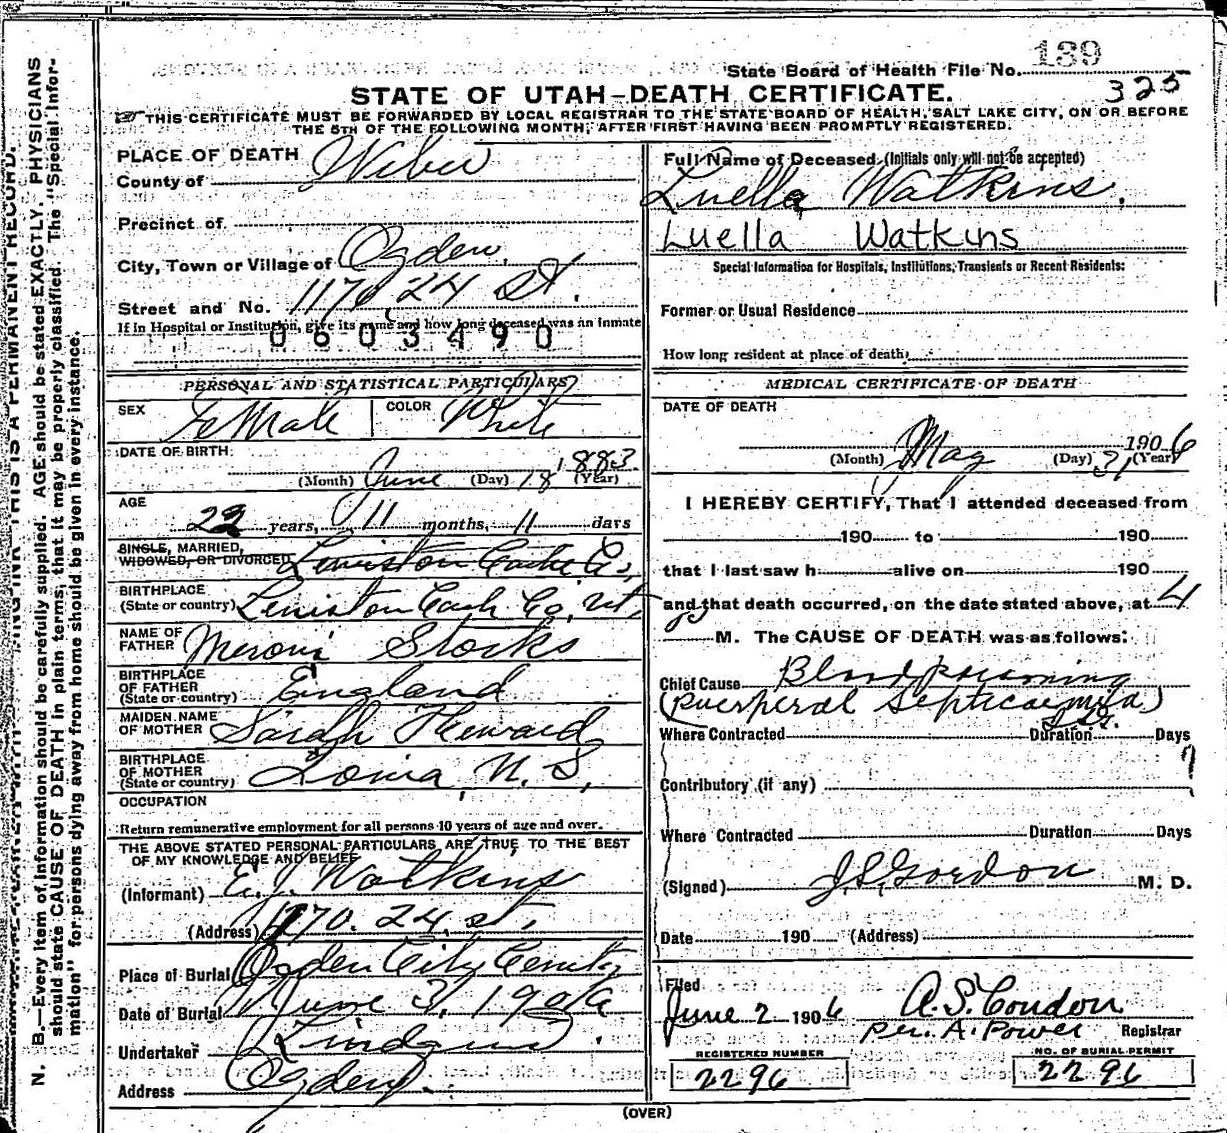 State Board of Health File No. 139
325
STATE OF UTAH—DEATH CERTIFICATE.
☞ THIS CERTIFICATE MUST BE FORWARDED BY LOCAL REGISTRAR TO THE STATE BOARD OF HEALTH, SALT LAKE CITY, ON OR BEFORE
THE 5TH OF THE FOLLOWING MONTH, AFTER FIRST HAVING BEEN PROMPTLY REGISTERED.
PLACE OF DEATH
County of Weber
Precinct of
City, Town or Village of Ogden,
Street and No. 1170 24 St.
If in Hospital or Institution, give its name and how long deceased was an inmate
0603490
PERSONAL AND STATISTICAL PARTICULARS
SEX FeMale COLOR White
DATE OF BIRTH
(Month) June (Day) 18 1883 (Year)
AGE
22 years, 11 months, 11 days
SINGLE, MARRIED,
WIDOWED, OR DIVORCED Lewiston Cache Co,
BIRTHPLACE
(State or country) Lewiston Cach Co, Ut,
NAME OF
FATHER Meroni Stocks
BIRTHPLACE
OF FATHER
(State or country) England
MAIDEN NAME
OF MOTHER Sarah
BIRTHPLACE
OF MOTHER
(State or country)
OCCUPATION
Return remunerative employment for all persons 10 years of age and over.
THE ABOVE STATED PERSONAL PARTICULARS ARE TRUE TO THE BEST
OF MY KNOWLEDGE AND BELIEF
(Informant) E. J. Watkins
(Address) 1170. 24 st,
Place of Burial Ogden City
Date of Burial June 3, 1906
Undertaker
Address Ogden.
Full Name of Deceased (Initials only will not be accepted)
Luella Watkins.
Luella Watkins
Special Information for Hospitals, Institutions, Transients or Recent Residents:
Former or Usual Residence
How long resident at place of death
MEDICAL CERTIFICATE OF DEATH
DATE OF DEATH
(Month) May (Day) 31 1906 (Year)
I HEREBY CERTIFY, That I attended deceased from
190 to 190
that I last saw h alive on 190
and that death occurred, on the date stated above, at 4
M. The CAUSE OF DEATH was as follows:
Chief Cause Blood poisoning
(Puerperal Septicaemia)
Where Contracted Duration Days
Contributory (if any)
Where Contracted Duration Days
(Signed) J.S. Gordon M. D.
Date 190 (Address)
Filed
June 2 1906 A.S. Condon
per. A. Power Registrar
REGISTERED NUMBER
2296
NO. OF BURIAL PERMIT
2296
(OVER)
N. B.—Every item of information should be carefully supplied. AGE should be stated EXACTLY. PHYSICIANS
should state CAUSE OF DEATH in plain terms, that it may be properly classified. The "Special Infor-
mation" for persons dying away from home should be given in every instance.
THIS IS A PERMANENT RECORD.